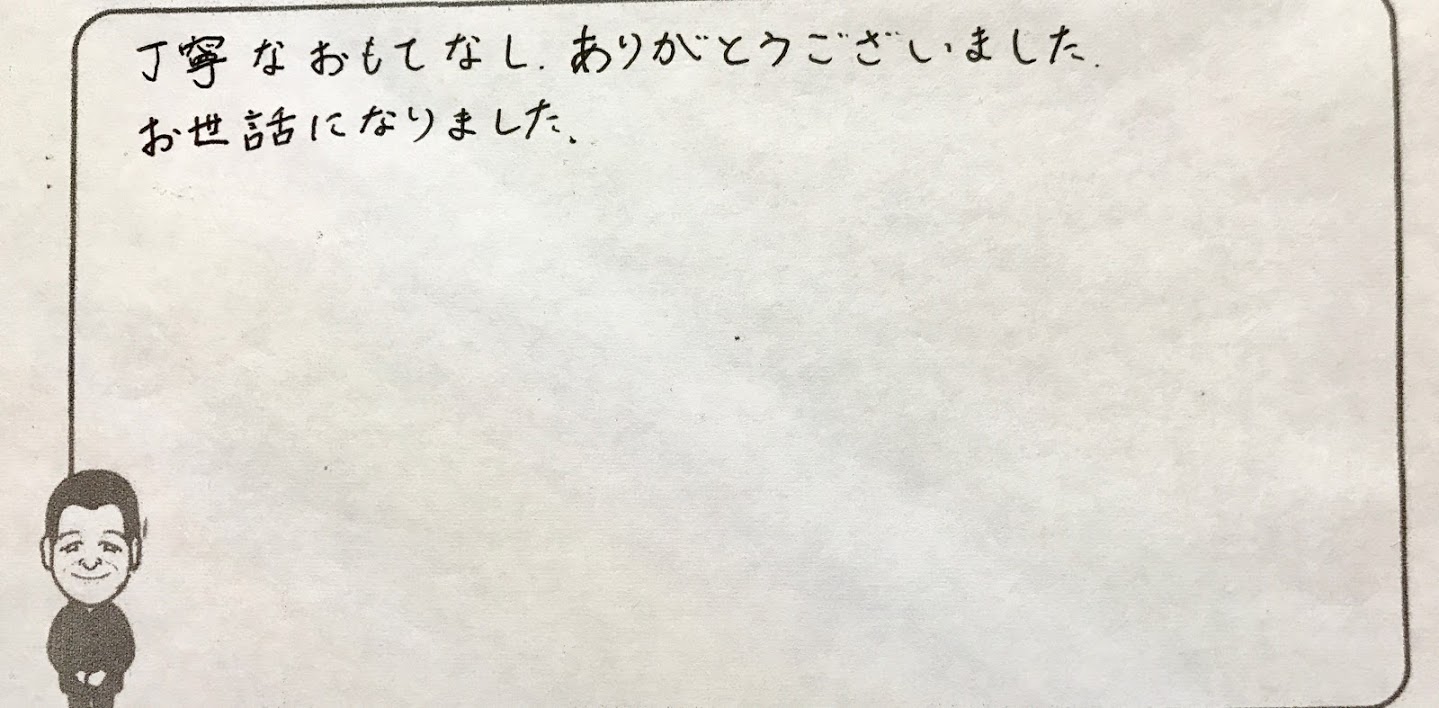 丁寧なおもてなし.ありがとうございました.
お世話になりました、